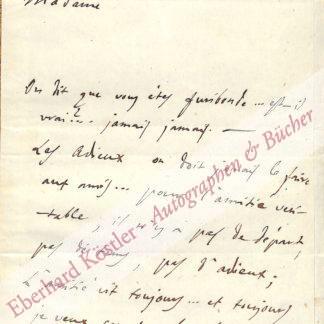 Madame
On dit que vous êtes furibonde... est-il
vrai?.. jamais jamais. —
Les adieux on doit jamais le faire
aux amis... pour l'amitié véri-
table, il n'y a pas de départ,
pas d'adieux;
L'amitié vit toujours... et toujours
je veux
Eberhard Köstler - Autographen & Bücher